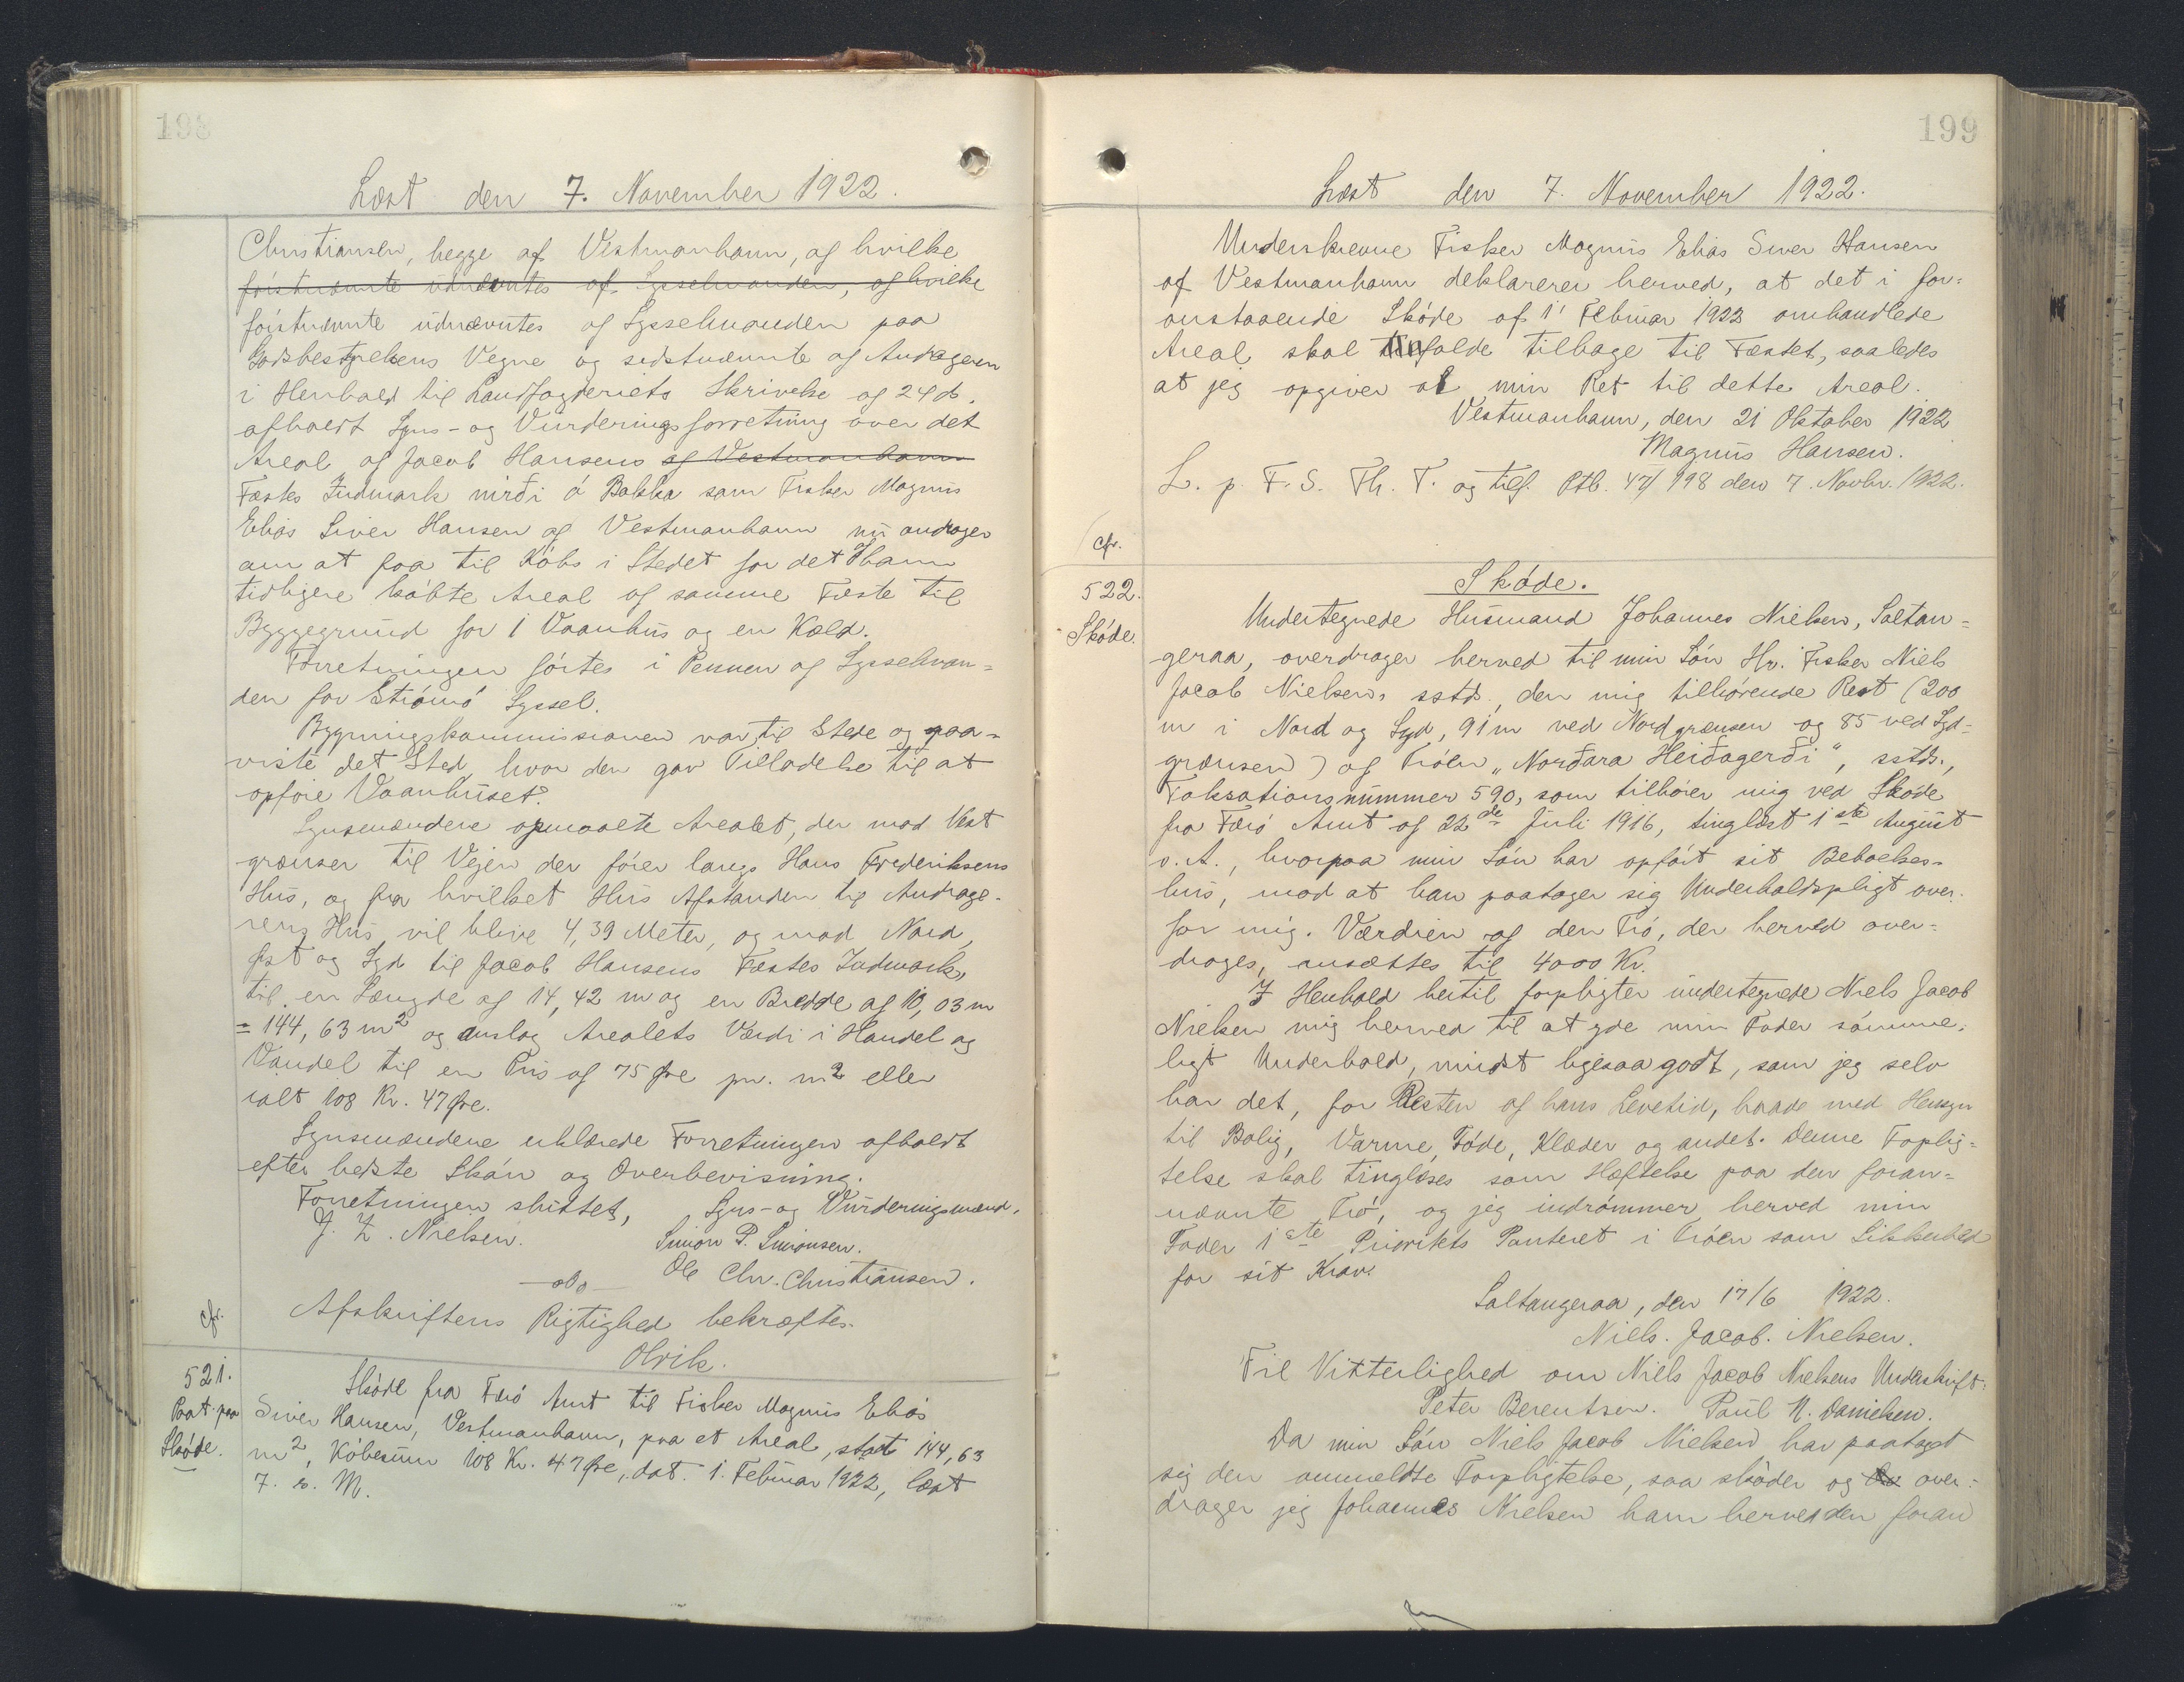 198
Læst den 7. November 1922.
Christiansen, begge af Vestmanhavn, af hvilke
førstnævnte udnævntes af Sysselmanden, af hvilke
førstnævnte udnævntes af Sysselmanden paa
Godsbestyrelsens Vegne og sidstnævnte af Andrageren
i Henhold til Landfogderiets Skrivelse af 24 ds.
afholdt Syns- og Vurderingsforretning over det
Areal af Jacob Hansens af Vestmanhavn
Fæstes Indmark nirði á Bakka som Fisker Magnus
Elias Siver Hansen af Vestmanhavn nu andrager
om at faa til Købs i Stedet for det af ham
tidligere købte Areal af samme Fæste til
Byggegrund for 1 Vaanhus og en Kæld.
Forretningen førtes i Pennen af Sysselman-
den for Strømø Syssel.
Bygningskommissionen var til Stede og paa-
viste det Sted hvor den gav Tilladelse til at
opføre Vaanhuset.
Synsmændene opmaalte Arealet, der mod Vest
grænser til Vejen der fører langs Hans Frederiksens
Hus, og fra hvilket Hus Afstanden til Andrage-
rens Hus vil blive 4,39 Meter, og mod Nord,
Øst og Syd til Jacob Hansens Fæstes Indmark,
til en Længde af 14,42 m og en Bredde af 10,03 m
= 144,63 m² og anslog Arealets Værdi i Handel og
Vandel til en Pris af 75 Øre pr. m² eller
ialt 108 Kr. 47 Øre.
Synsmændene erklærede Forretningen afholdt
efter bedste Skøn og Overbevisning.
Forretningen sluttet, Syns- og Vurderingsmænd.
J. Z. Nielsen. Simon P. Simonsen.
Ole Chr. Christiansen.
-o0o-
Afskriftens Rigtighed bekræftes.
Olrik.
cfr.
521.
Paat. paa
Skøde.
Skøde fra Færø Amt til Fisker Magnus Elias
Siver Hansen, Vestmanhavn, paa et Areal, stort 144,63
m², Købesum 108 Kr. 47 Øre, dat. 1. Februar 1922, læst
7. s. M.
199
Læst den 7. November 1922.
Underskrevne Fisker Magnus Elias Siver Hansen
af Vestmanhavn deklarerer herved, at det i for-
anstaaende Skøde af 1' Februar 1922 omhandlede
Areal skal falde tilbage til Fæstet, saaledes
at jeg opgiver al min Ret til dette Areal.
Vestmanhavn, den 21 Oktober 1922
Magnus Hansen.
L. p. F. S. Th. T. og tilf. Ptb. 47/198 den 7. Novbr. 1922.
cfr.
522.
Skøde.
Skøde.
Undertegnede Husmand Johannes Nielsen, Saltan-
geraa, overdrager herved til min Søn Hr. Fisker Niels
Jacob Nielsen, sstds., den mig tilhørende Rest (200
m i Nord og Syd, 91 m ved Nordgrænsen og 85 ved Syd-
grænsen) af Trøen "Norðara Heiðagerði", sstds.,
Taksationsnummer 590, som tilhører mig ved Skøde
fra Færø Amt af 22de Juli 1916, tinglæst 1ste August
s. A., hvorpaa min Søn har opført sit Beboelses-
hus, mod at han paatager sig Underholdspligt over-
for mig. Værdien af den Trø, der herved over-
drages, ansættes til 4000 Kr.
I Henhold hertil forpligter undertegnede Niels Jacob
Nielsen mig herved til at yde min Fader sømme-
ligt Underhold, mindst ligesaa godt, som jeg selv
har det, for Resten af hans Levetid, baade med Hensyn
til Bolig, Varme, Føde, Klæder og andet. Denne Foplig-
telse skal tinglæses som Hæftelse paa den foran-
nævnte Trø, og jeg indrømmer herved min
Fader 1ste Prioritets Panteret i Trøen som Sikkerhed
for sit Krav.
Saltangeraa, den 17/6 1922.
Niels. Jacob. Nielsen.
Til Vitterlighed om Niels Jacob Nielsens Underskrift:
Peter Berentsen. Paul N. Danielsen.
Da min Søn Niels Jacob Nielsen har paataget
sig den anmeldte Forpligtelse, saa skøder og over-
drager jeg Johannes Nielsen ham herved den foran